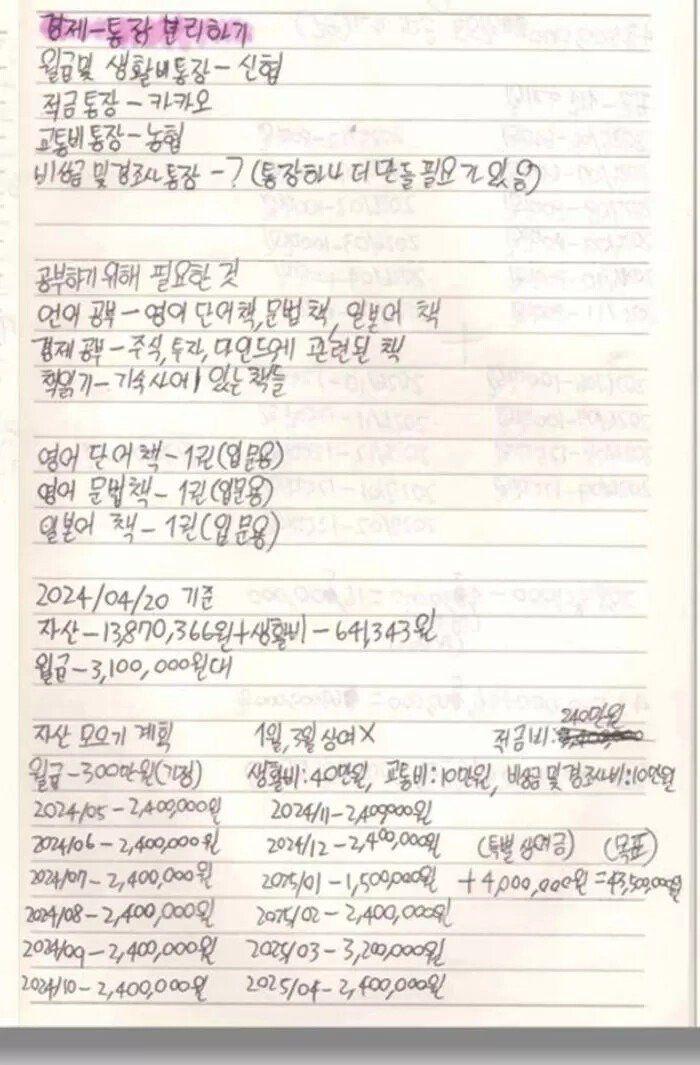 경제-통장 분리하기
월급및 생활비통장-신협
적금통장-카카오
교통비통장-농협
비상금 및 경조사 통장 -? (통장하나 더 만들 필요가 있음)
공부하기 위해 필요한 것
언어 공부-영어 단어책, 문법책, 일본어 책
경제 공부-주식, 투자, 마인드에 관련된 책
책읽기-기숙사에 있는 책들
영어 단어책-1권(입문용)
영어 문법책-1권(입문용)
일본어 책-1권(입문용)
2024/04/20 기준
자산-13,870,366원+생활비-641,343원
월급-3,100,000원대
자산 모으기 계획 1월, 3월 상여X 적금비: 240만원
월급-300만원(가정) 생활비:40만원, 교통비:10만원, 비상금 및 경조사비:10만원
2024/05-2,400,000원 2024/11-2,400000원
2024/06-2,400,000원 2024/12-2,400,000원 (특별 상여금) (목표)
2024/07-2,400,000원 2025/01-1,500,000원 +4,000,000원=43,500,000원
2024/08-2,400,000원 2025/02-2,400,000원
2024/09-2,400,000원 2025/03-3,200,000원
2024/10-2,400,000원 2025/04-2,400,000원